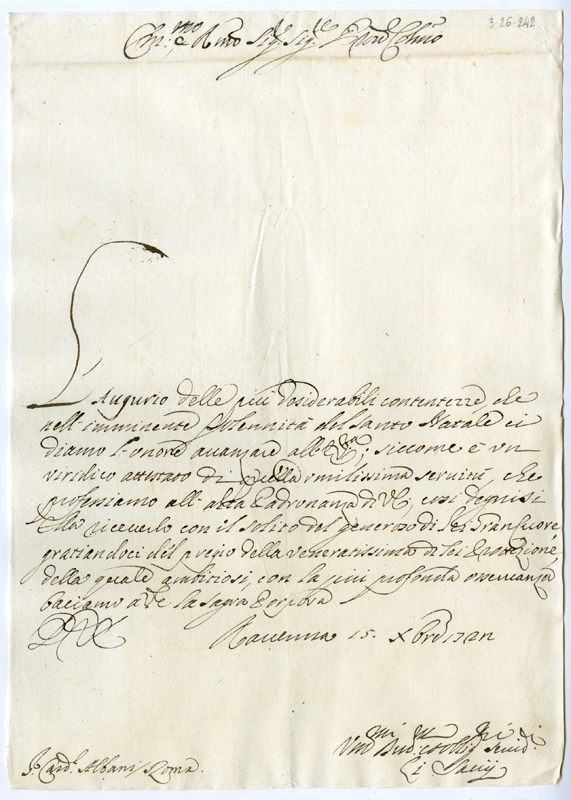 3-26-242
Em.mo e Rmo Sig.r Sig.r Pron Colmo
L'Augurio delle più desiderabili contentezze, che
nell'imminente solennità del Santo Natale ci
diamo l'onore avanzare all'E Vra, siccome è un
viridico attestato di quella umilissima servitù, che
professiamo all'alta Padronanza di VE, così degnisi
Ella riceverlo con il solito del generoso di Lei
gratiandoci del pregio della veneratissima di Lei Protezione,
della quale ambitiosi, con la più profonda osservanza
baciamo a VE la Sagra Porpora
DVE Ravenna 15. Xbre
Vmi Dmi Obblig.mi Servid.
Li Savij
S. Card. Albani Roma.